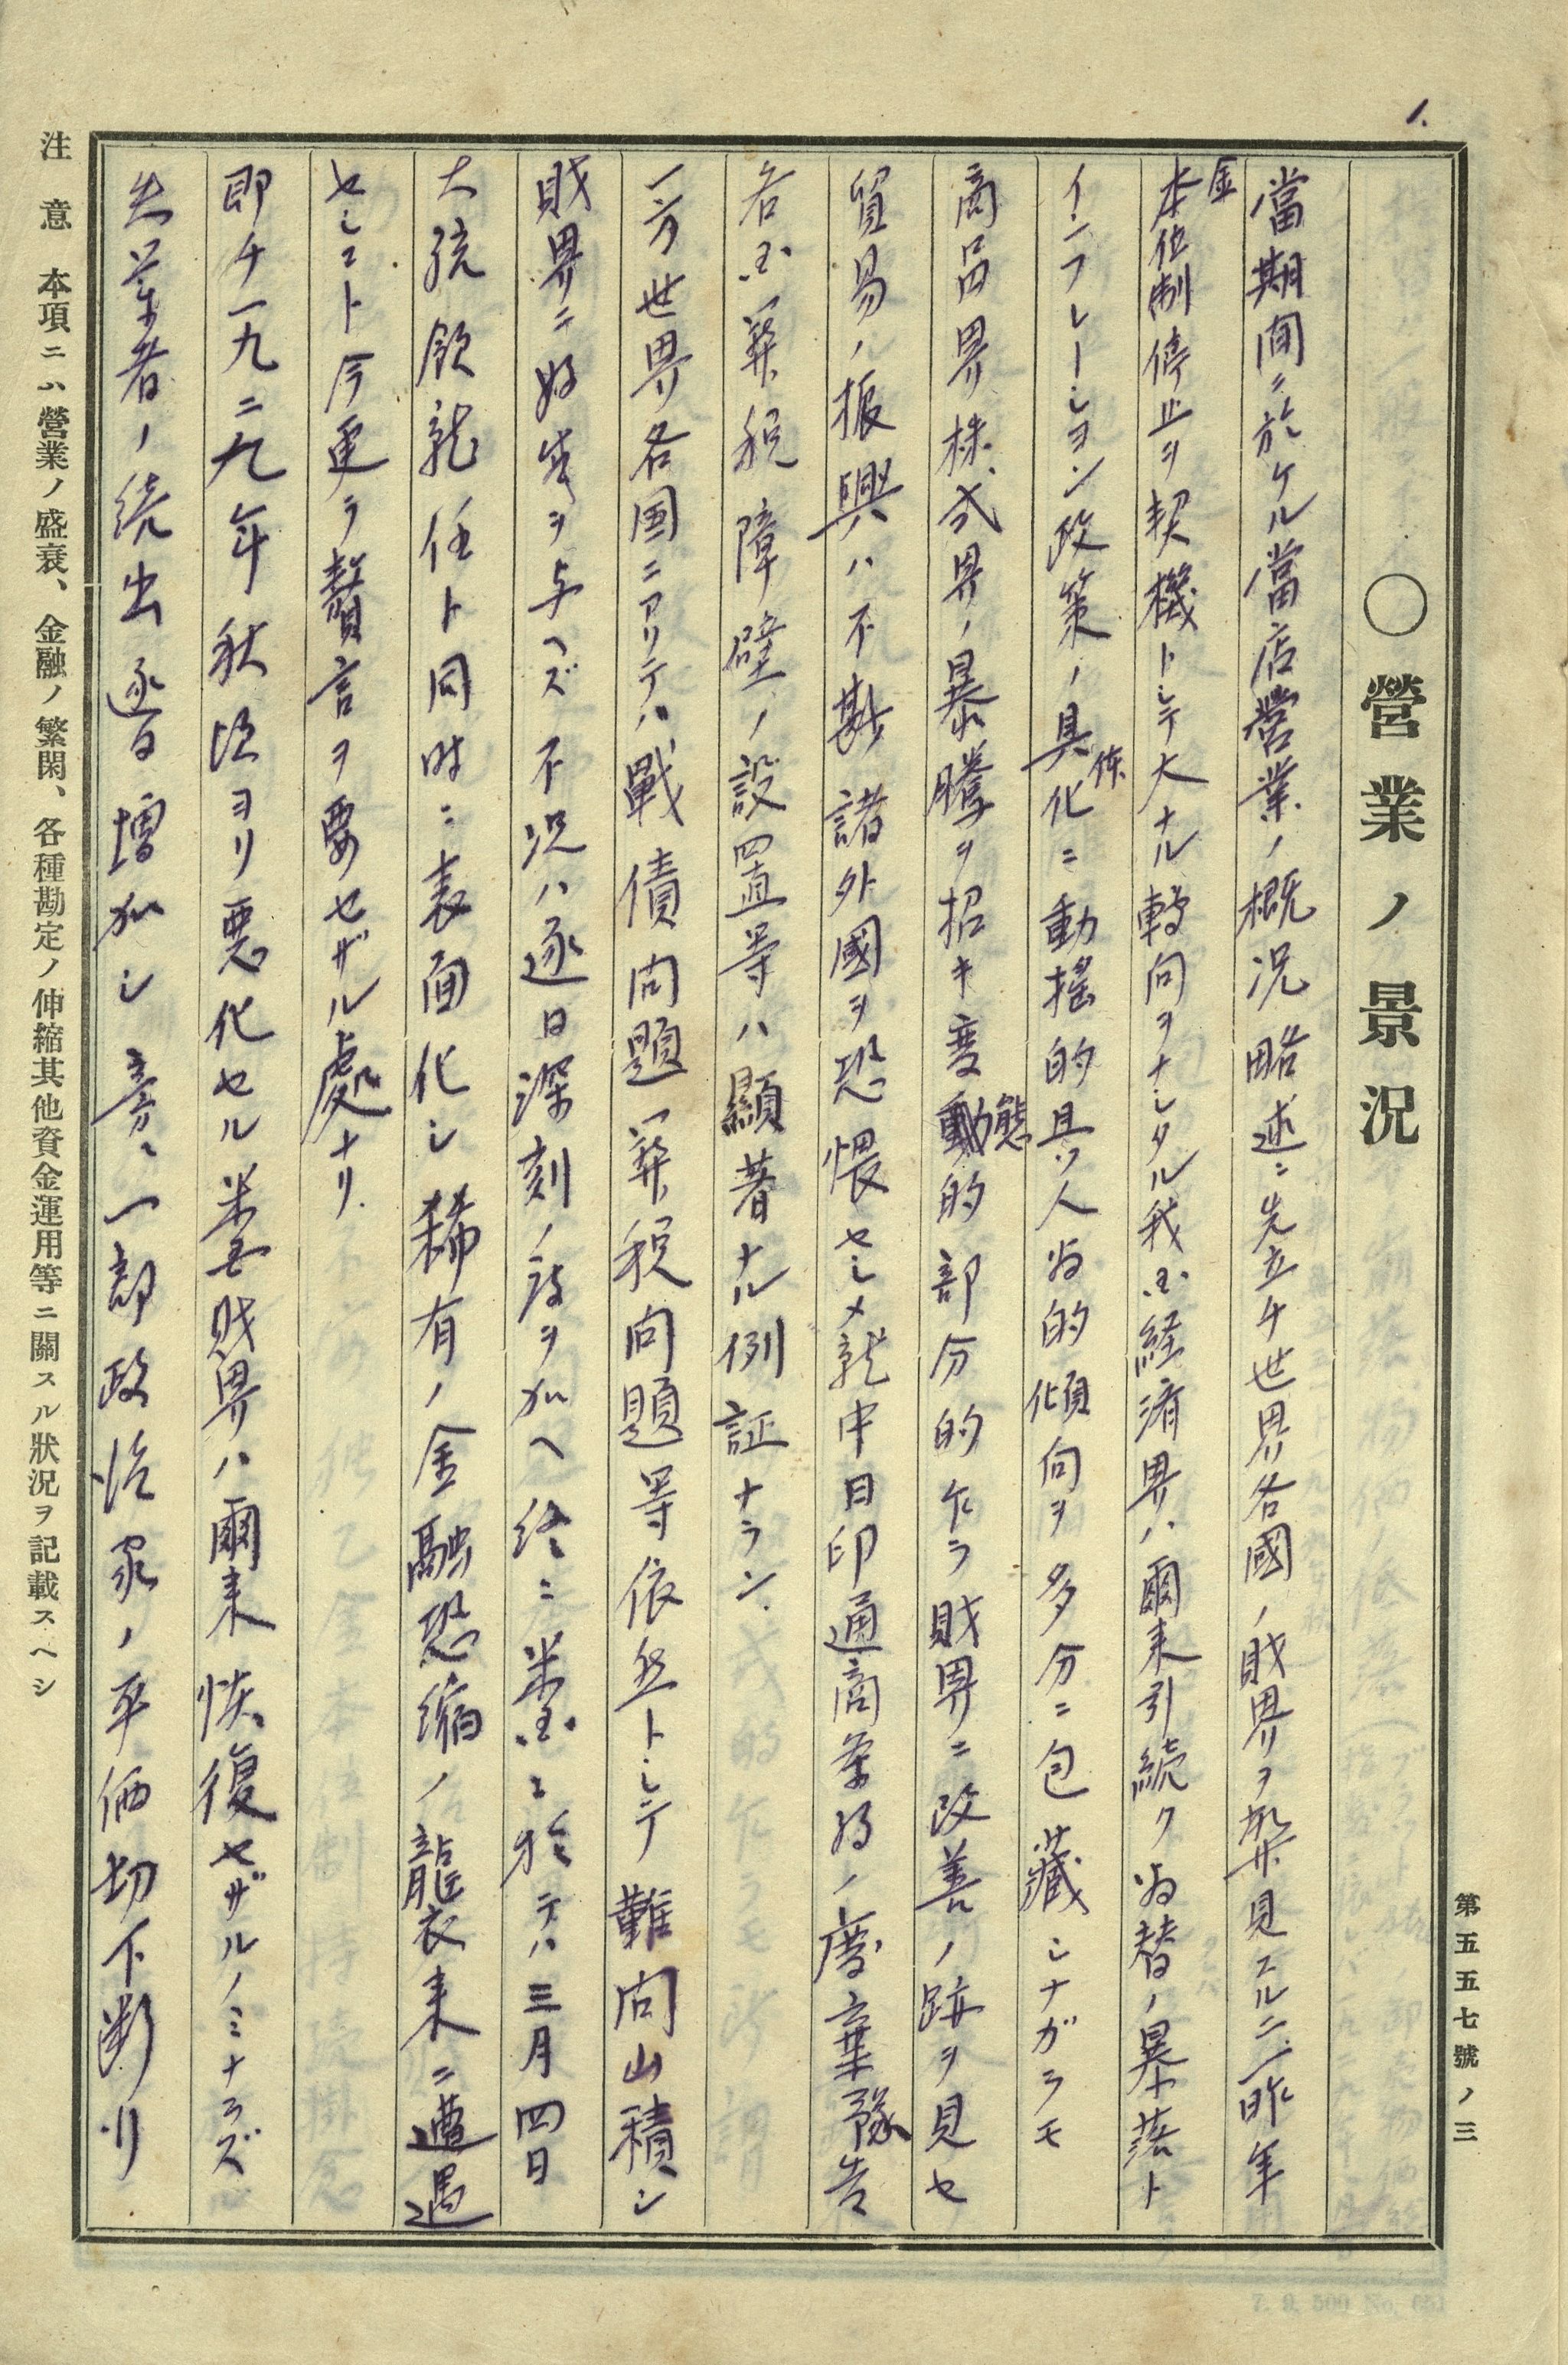 1.
第五五七號ノ三
〇營業ノ景況
當期間ニ於ケル當店營業ノ概況略述ニ先立チ世界各國ノ財界ヲ概見スルニ一昨年
金本位制停止ヲ契機トシテ大ナル轉向ヲナシタル我国経済界ハ爾来引続ク為替ノ暴落ト
インフレーシヨン政策ノ具体化ニ動揺的且ツ人為的傾向ヲ多分ニ包藏シナガラモ
商品界株式界ノ暴騰ヲ招キ変態的部分的乍ラ財界ニ改善ノ跡ヲ見セ
貿易ノ振興ハ不尠諸外國ヲ恐畏セシメ就中日印通商条約ノ廃棄豫告
各国関税障壁ノ設置等ハ顯著ナル例証ナラン
一方世界各国ニアリテハ戰債問題関税問題等依然トシテ難問山積シ
財界ニ好寄ヲ与ヘズ不況ハ逐日深刻ノ度ヲ加ヘ終ニ米国ニ於テハ三月四日
大統領就任ト同時ニ表面化シ稀有ノ金融恐縮ノ襲来ニ遭遇
セシコト今更ラ贅言ヲ要セザル處ナリ
即チ一九二九年秋頃ヨリ悪化セル米国財界ハ爾来恢復セザルノミナラズ
失業者ノ続出逐日増加シ旁々一部政治家ノ平価切下断行
注意 本項ニハ營業ノ盛衰、金融ノ繁閑、各種勘定ノ伸縮其他資金運用等ニ關スル狀況ヲ記載スヘシ
7. 9. 500 No. 651